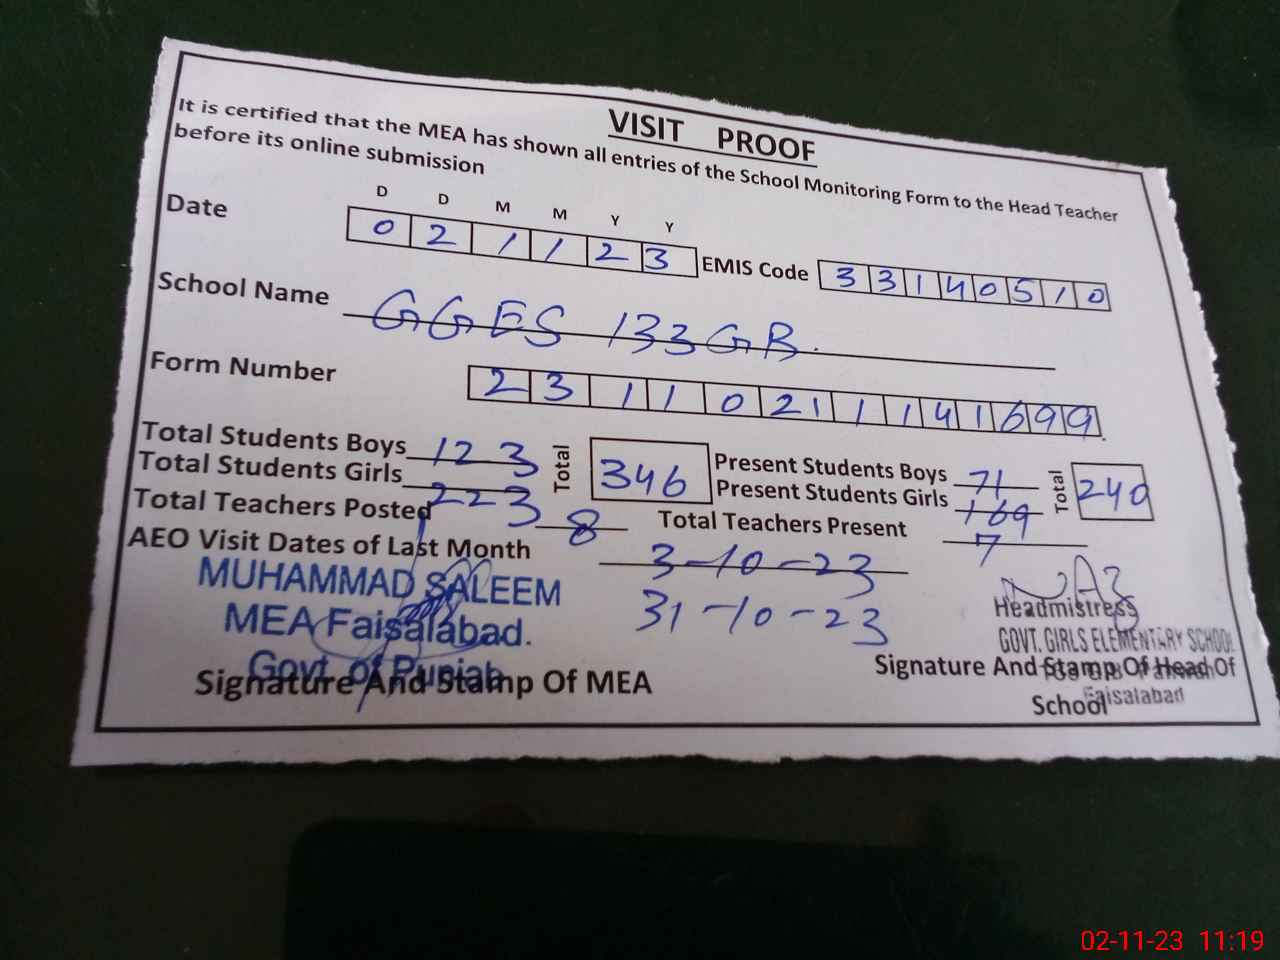 VISIT PROOF
It is certified that the MEA has shown all entries of the School Monitoring Form to the Head Teacher
before its online submission
D D M M Y Y
Date 0 2 1 1 2 3 EMIS Code 3 3 1 4 0 5 1 0
School Name GGES 133 GB.
Form Number 2 3 1 1 0 2 1 1 1 4 1 6 9 9
Total Students Boys 123 Total 346 Present Students Boys 71 Total 240
Total Students Girls 223 Present Students Girls 169
Total Teachers Posted 8 Total Teachers Present 7
AEO Visit Dates of Last Month 3-10-23
31-10-23
MUHAMMAD SALEEM
MEA Faisalabad.
Govt. of Punjab
Signature And Stamp Of MEA
Headmistress
GOVT. GIRLS ELEMENTARY SCHOOL
Faisalabad
Signature And Stamp Of Head Of
School
02-11-23 11:19